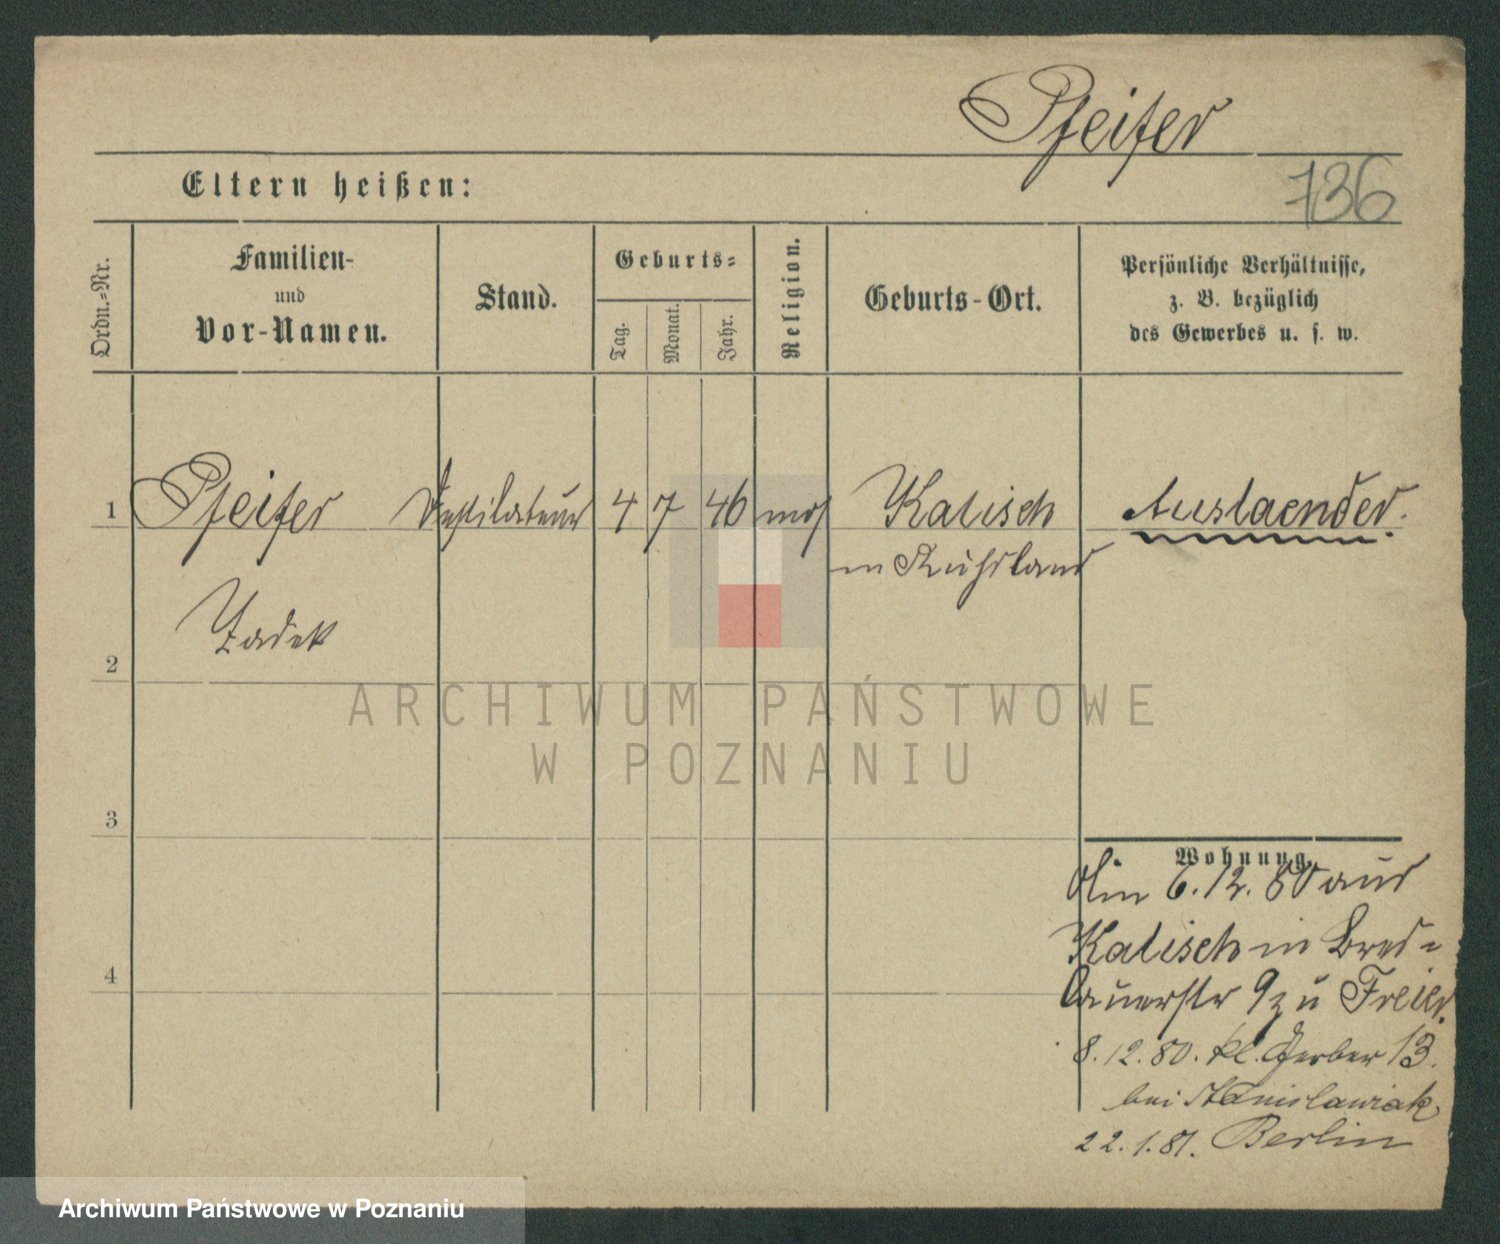 Pfeifer
Eltern heißen:
736
Ordn.=Nr.
Familien-
und
Vor-Namen.
Stand.
Geburts=
Tag.
Monat.
Jahr.
Religion.
Geburts-Ort.
Persönliche Verhältnisse,
z. B. bezüglich
des Gewerbes u. s. w.
1 Pfeifer Destilateur 4 7 46 mos Kalisch Auslaender.
in Rußland
Zadek
2
ARCHIWUM PAŃSTWOWE
W POZNANIU
3
Wohnung.
6. 12. 80 aus
Kalisch in Bres=
lauerstr 9 zu Freier.
4
8. 12. 80. kl. Gerber 13.
bei Stanislawiak
22. 1. 81. Berlin
Archiwum Państwowe w Poznaniu